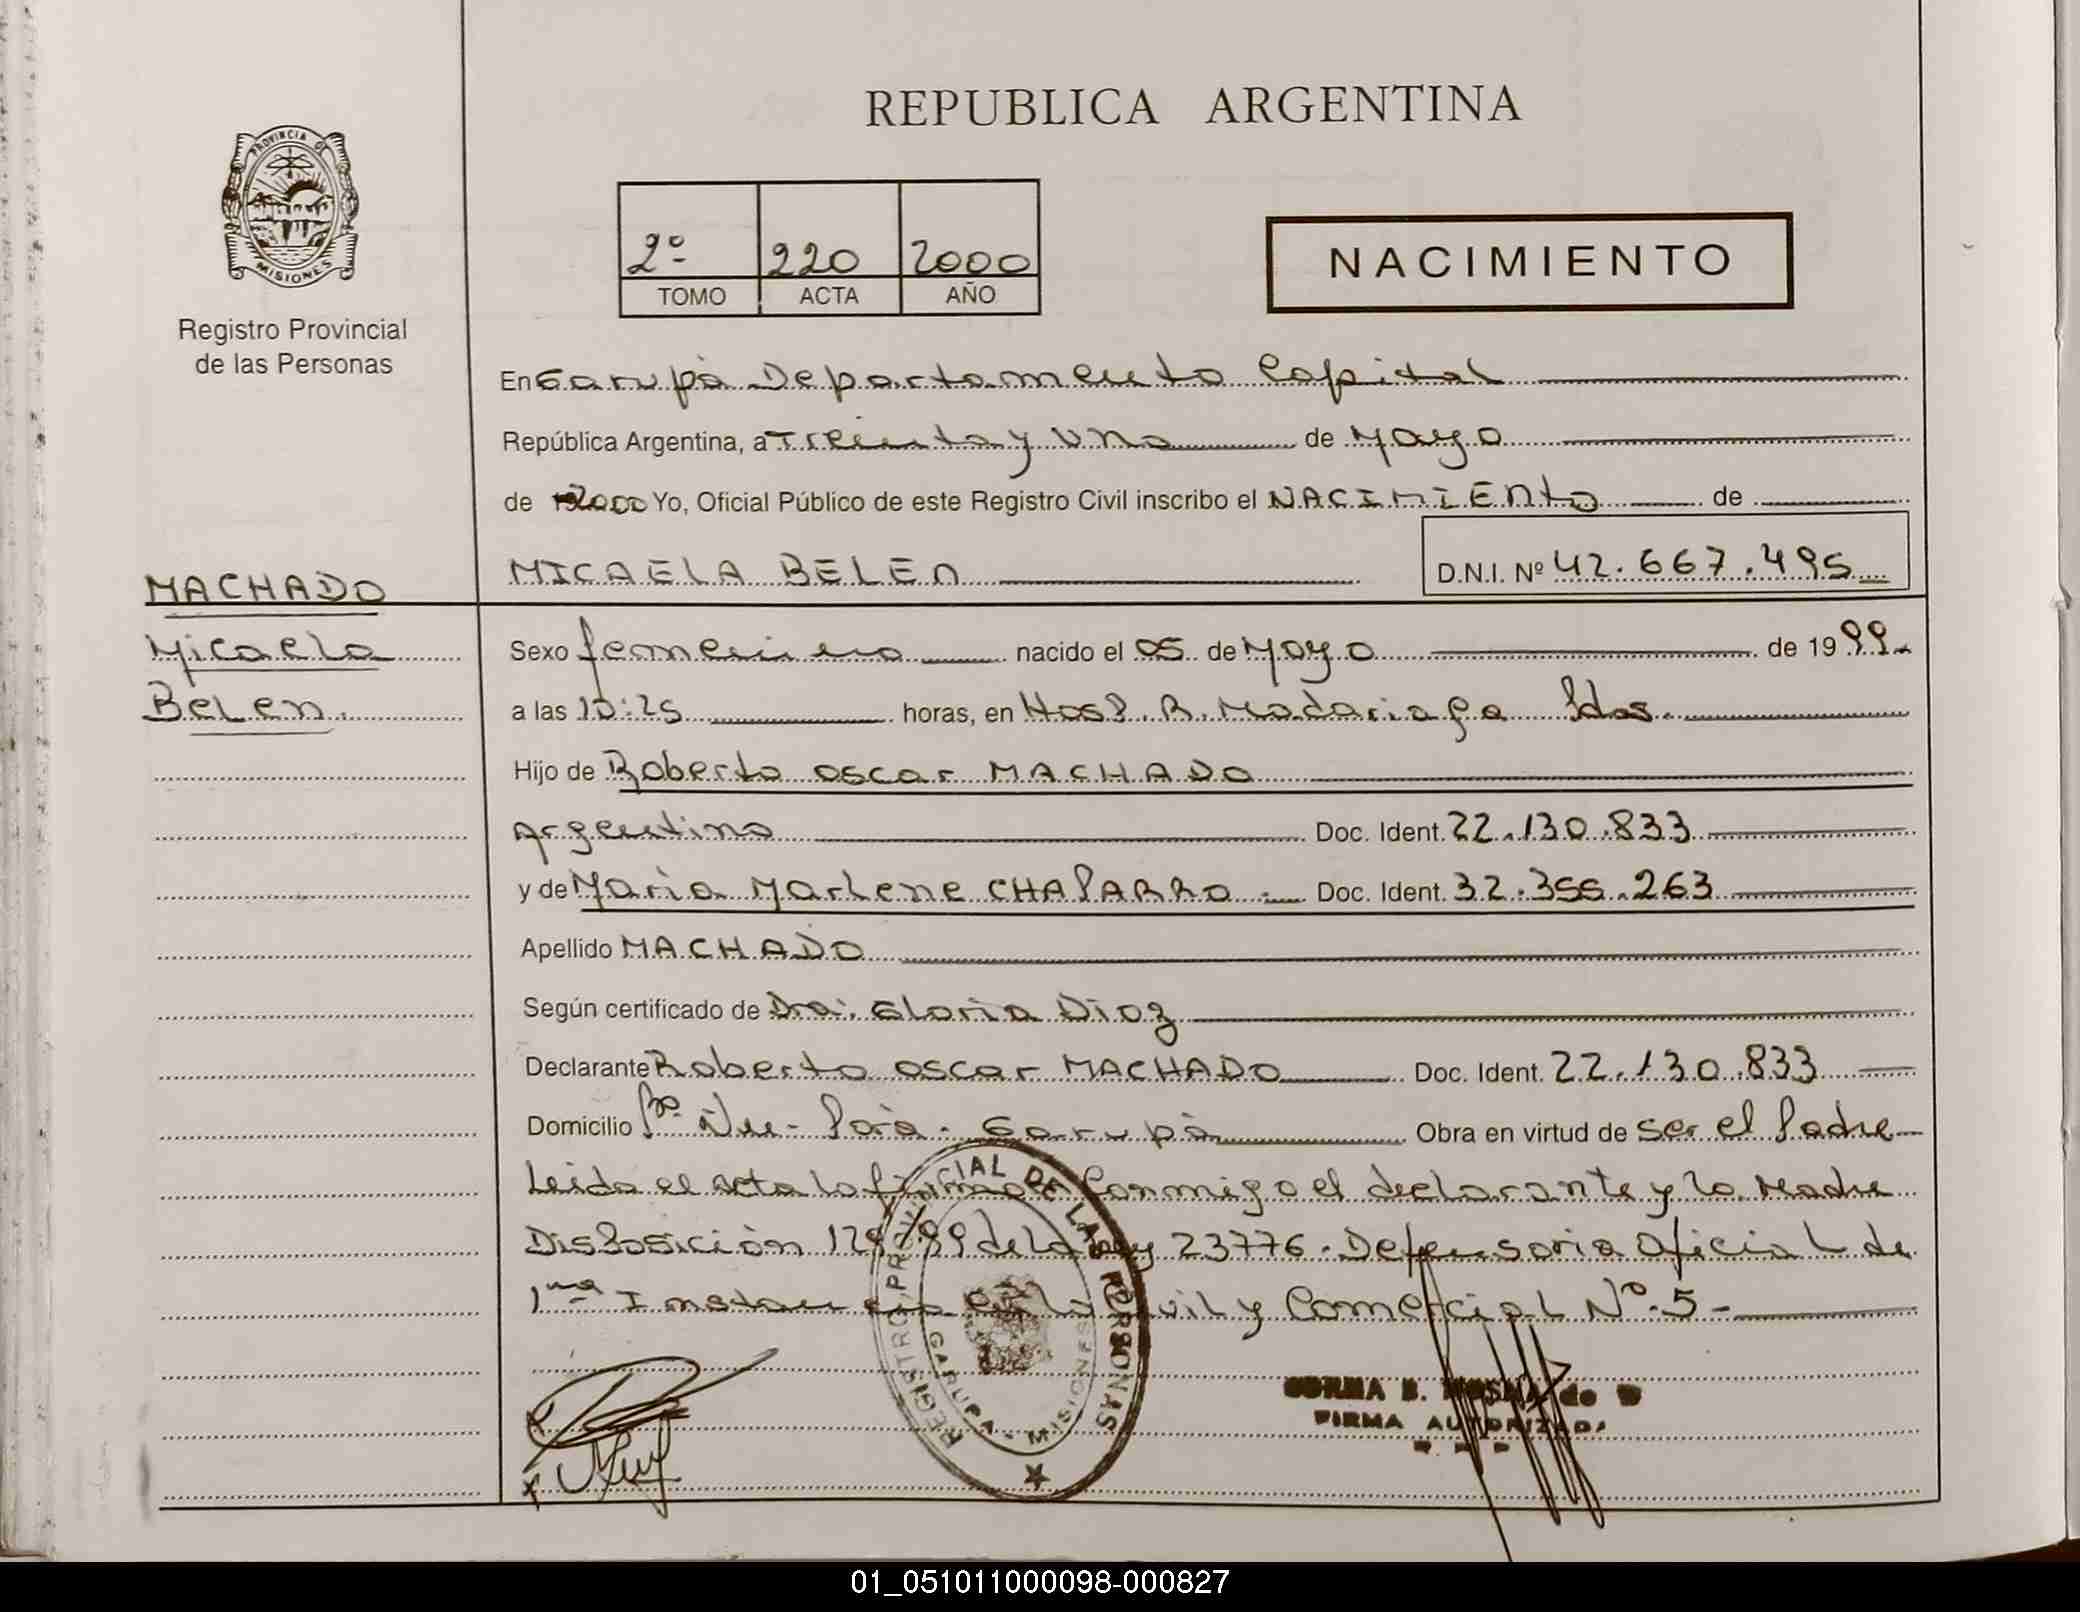 REPUBLICA ARGENTINA
PROVINCIA DE
MISIONES
Registro Provincial
de las Personas
2º 220 2000
TOMO ACTA AÑO
NACIMIENTO
En Garupá Departamento Capital
República Argentina, a Treinta y Uno de Mayo
de 2000 Yo, Oficial Público de este Registro Civil inscribo el NACIMIENto de
MICAELA BELEN D.N.I. Nº 42.667.495
MACHADO
Micaela
Belen.
Sexo femenino nacido el 05 de Mayo de 1999.
a las 10:25 horas, en Hosp. R. Madariaga Pdas.
Hijo de Roberto Oscar MACHADO
argentino Doc. Ident. 22.130.833
y de Maria Marlene CHAPARRO Doc. Ident. 32.355.263
Apellido MACHADO
Según certificado de Dra. Gloria Diaz
Declarante Roberto Oscar MACHADO Doc. Ident. 22.130.833
Domicilio Bº Ñu-Porá. Garupá Obra en virtud de ser el Padre
Leida el acta la firma conmigo el declarante y la Madre
Disposición 129/99 de la Ley 23776. Defensoria Oficial de
1ma Instancia en lo Civil y Comercial Nº.5-
REGISTRO PROVINCIAL DE LAS PERSONAS
GARUPA - MISIONES
FIRMA AUTORIZADA
01_051011000098-000827